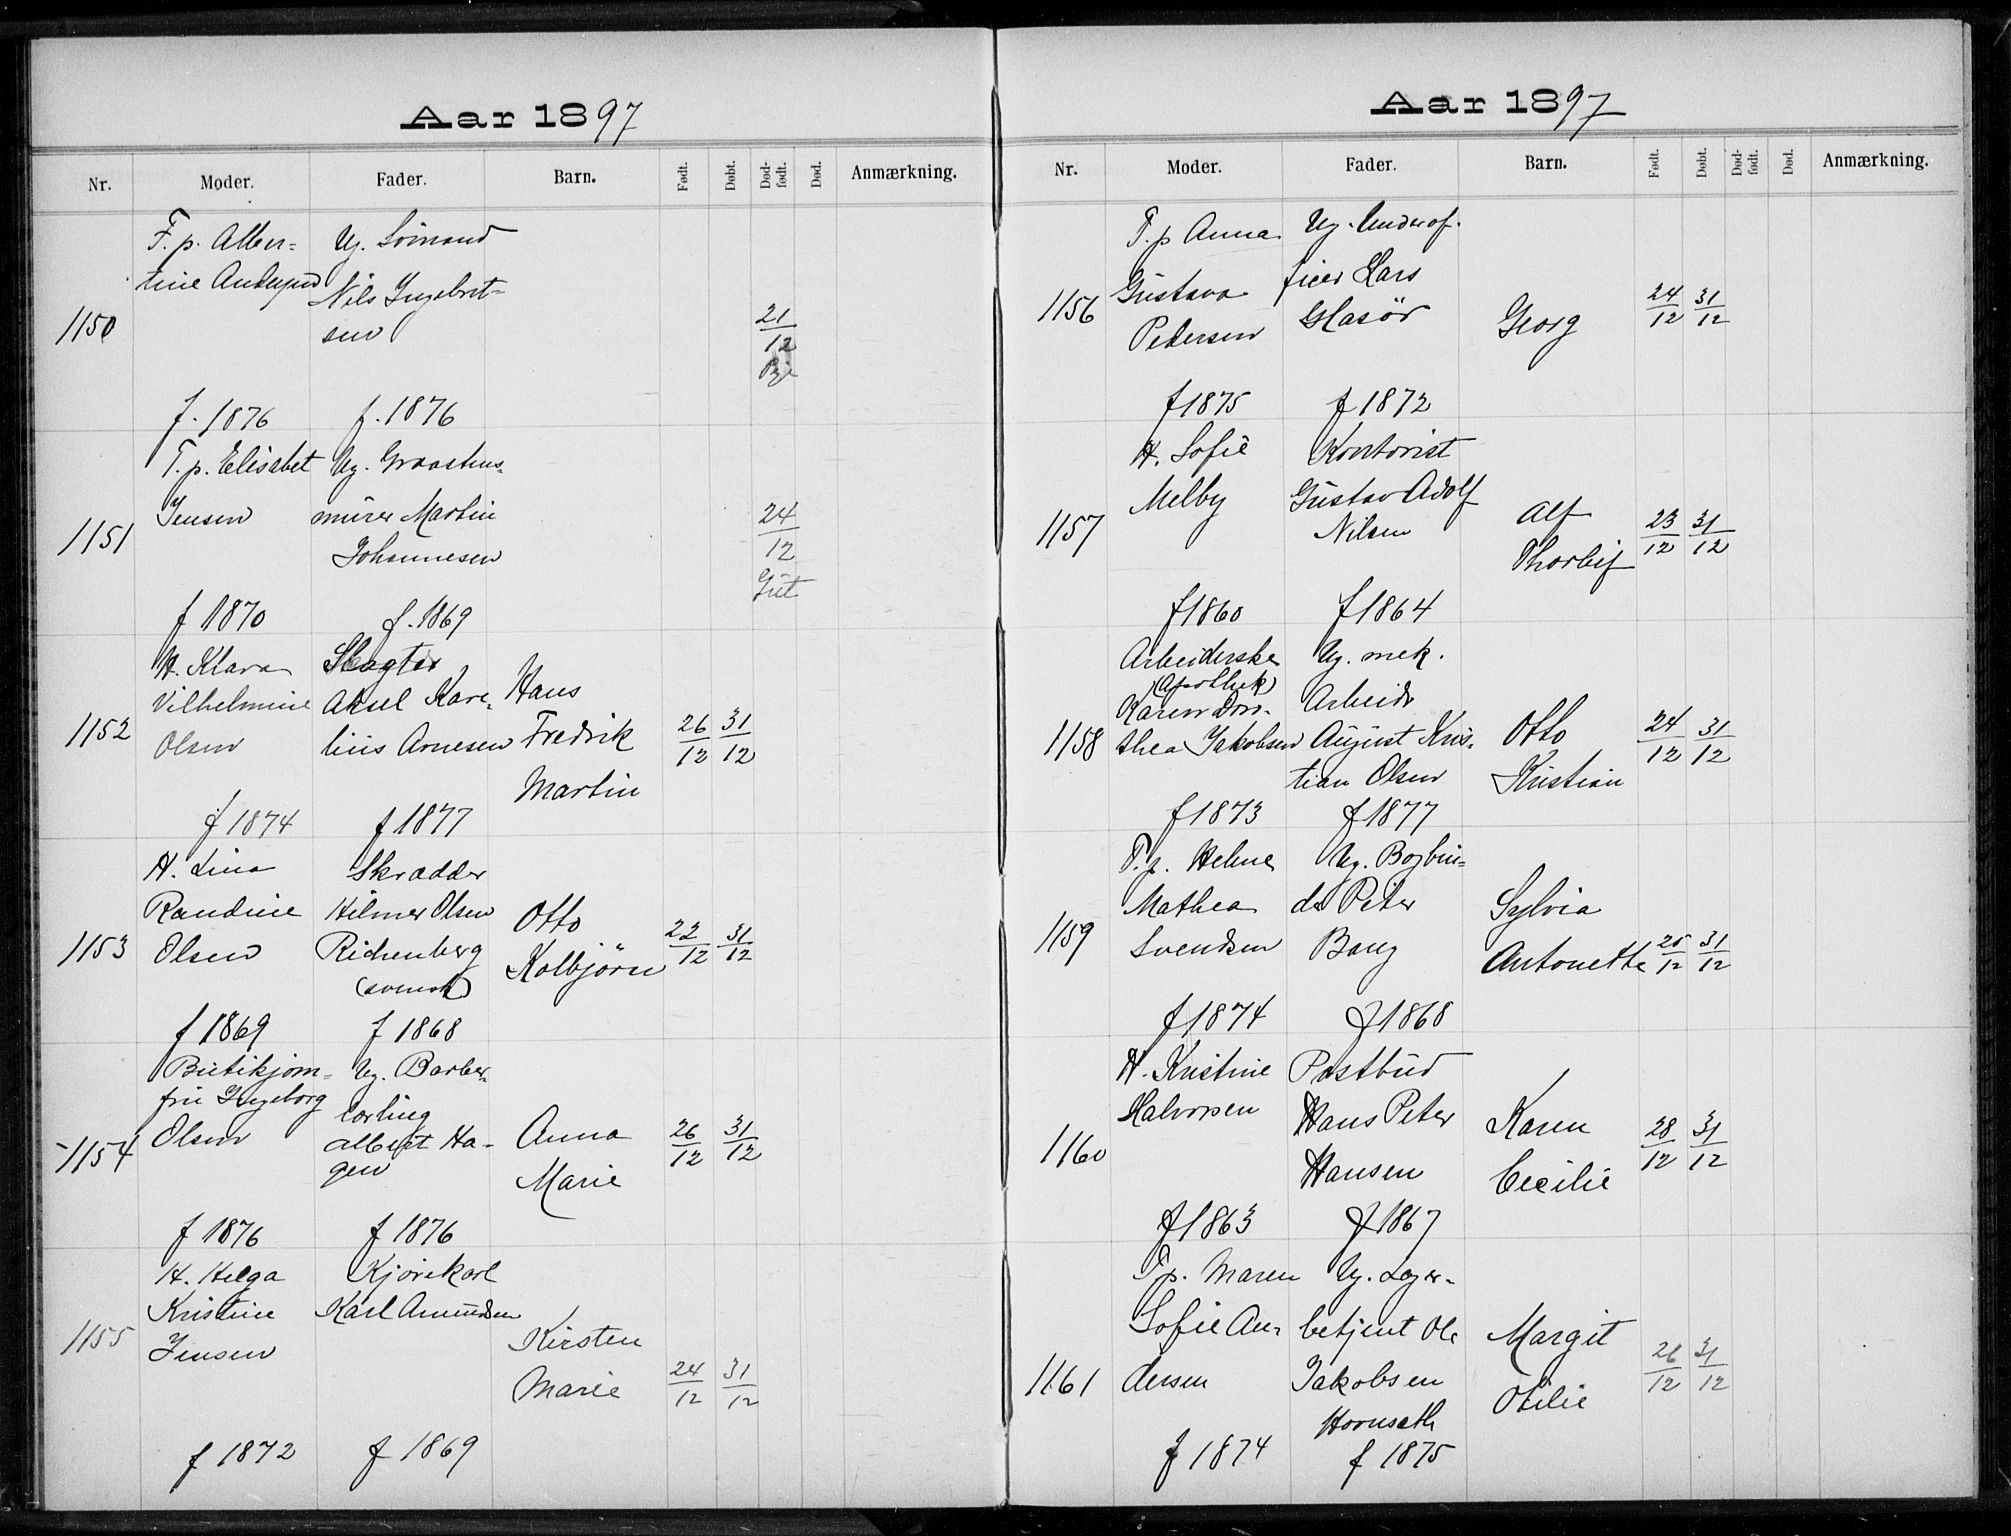 Aar 1897
Nr. Moder. Fader. Barn. Født. Døbt. Død-født. Død. Anmærkning.
1150
F. p. Alber-
tine Andersen
f. 1876
Ug. Sömand
Nils Ingebret-
sen
f. 1876
21/12
1151
F. p. Elisabet
Jensen
f 1870
Ug. Graastens-
murer Martin
Johannesen
f. 1869
24/12
1152
H. Klara
Vilhelmine
Olsen
f 1874
Slagter
Aksel Kare-
lius Arnesen
f 1877
Hans
Fredrik
Martin
26/12 31/12
1153
H. Lina
Randine
Olsen
f 1869
Skrædder
Hilmer Olsen
Richenberg
(svensk)
f 1868
Otto
Kolbjörn
22/12 31/12
1154
Butikjom-
fru Ingeborg
Olsen
f 1876
Ug. Barber-
lærling
Albert Ha-
gen
f 1876
Anna
Marie
26/12 31/12
1155
H. Helga
Kristine
Jensen
f 1872
Kjörekarl
Karl Amundsen
f 1869
Kirsten
Marie
24/12 31/12
Aar 1897
Nr. Moder. Fader. Barn. Født. Døbt. Død-født. Død. Anmærkning.
1156
F. p Anna
Gustava
Pedersen
f 1875
Ug. Underof-
ficer Lars
Glasör
f 1872
Georg
24/12 31/12
1157
H. Sofie
Melby
f 1860
Kontorist
Gustav Adolf
Nilsen
f 1864
Alf
Thorleif
23/12 31/12
1158
Arbeiderske
(Apothek)
Karen Doro-
thea Jakobsen
f 1873
Ug. mek.
Arbeider
August Kris-
tian Olsen
f 1877
Otto
Kristian
24/12 31/12
1159
F. p. Helene
Mathea
Svendsen
f 1874
Ug. Bogbin-
der Peter
Bang
f 1868
Sylvia
Antonette
25/12 31/12
1160
H. Kristine
Halvorsen
f 1863
Postbud
Hans Peter
Hansen
f 1867
Karen
Cecilie
28/12 31/12
1161
F. p. Maren
Sofie An-
dersen
f 1874
Ug. Lager-
betjent Ole
Jakobsen
Hornseth
f 1875
Margit
Otilie
26/12 31/12